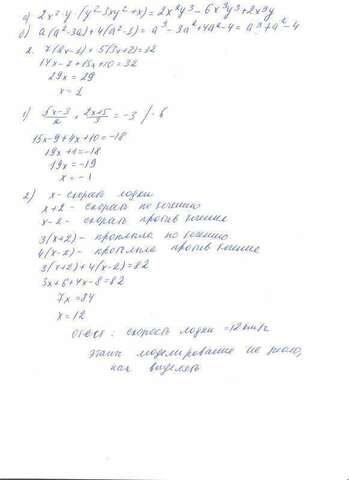 а) 2x²·y·(y²-3xy²+x)=2x²y³-6x³y³+2x³y
б) a(a²-3a)+4(a²-1)=a³-3a²+4a²-4=a³+a²-4
2. 7(2x-1)+5(3x+2)=32
14x-7+15x+10=32
29x=29
x=1
1) (5x-3)/2 + (2x+5)/3 = -3 /·6
15x-9+4x+10=-18
19x+1=-18
19x=-19
x=-1
2) x - скорость лодки
x+2 - скорость по течению
x-2 - скорость против течения
3(x+2) - проплыла по течению
4(x-2) - проплыла против течения
3(x+2)+4(x-2)=82
3x+6+4x-8=82
7x=84
x=12
Ответ: скорость лодки =12 км/ч
этапы моделирование не знаю,
как выделять